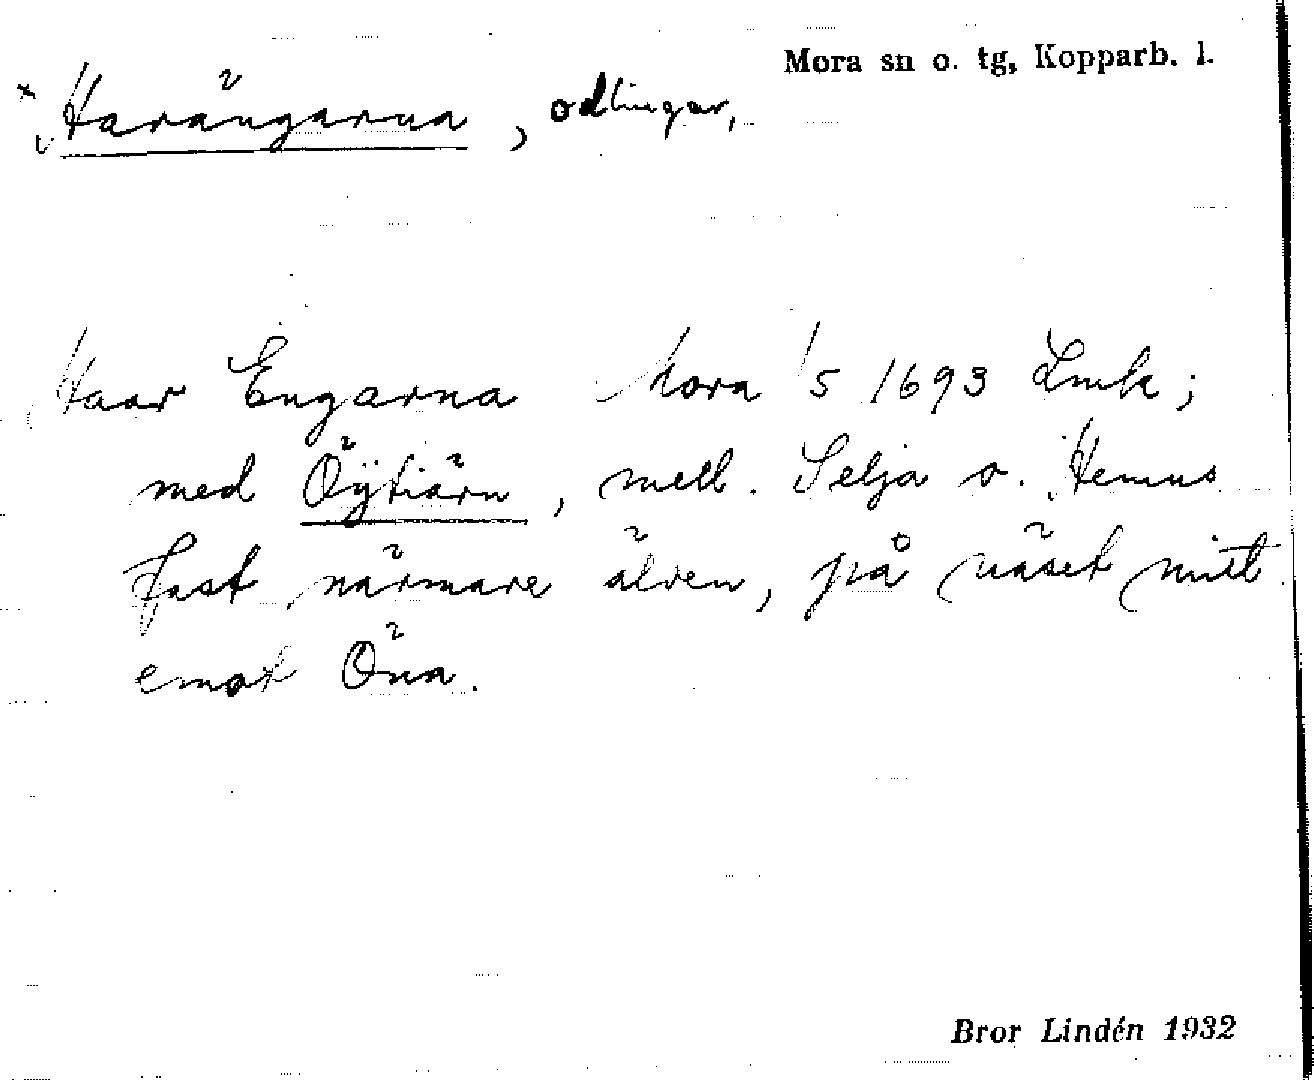 Mora sn o. tg, Kopparb. l.
Harängarna, odlingar,
Haar Engarna Mora 1/5 1693 Lmk;
med Öÿtiärn, mell. Selja o. Hemus
fast närmare älven, på näset mitt
emot Öna.
Bror Lindén 1932